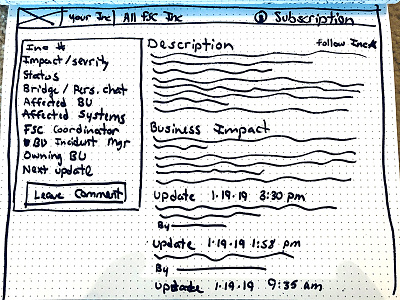 Your Inc | All FSC Inc Subscription
Inc #
Impact/sevrity
Status
Bridge / Pers. chat
Affected BU
Affected Systems
FSC Coordinator
BU Incident Mgr
Owning BU
Next update
Leave Comment
Description follow Inc
Business Impact
Update 1.19.19 3:30 pm
By
Update 1.19.19 1:58 pm
By
Update 1.19.19 9:35 am